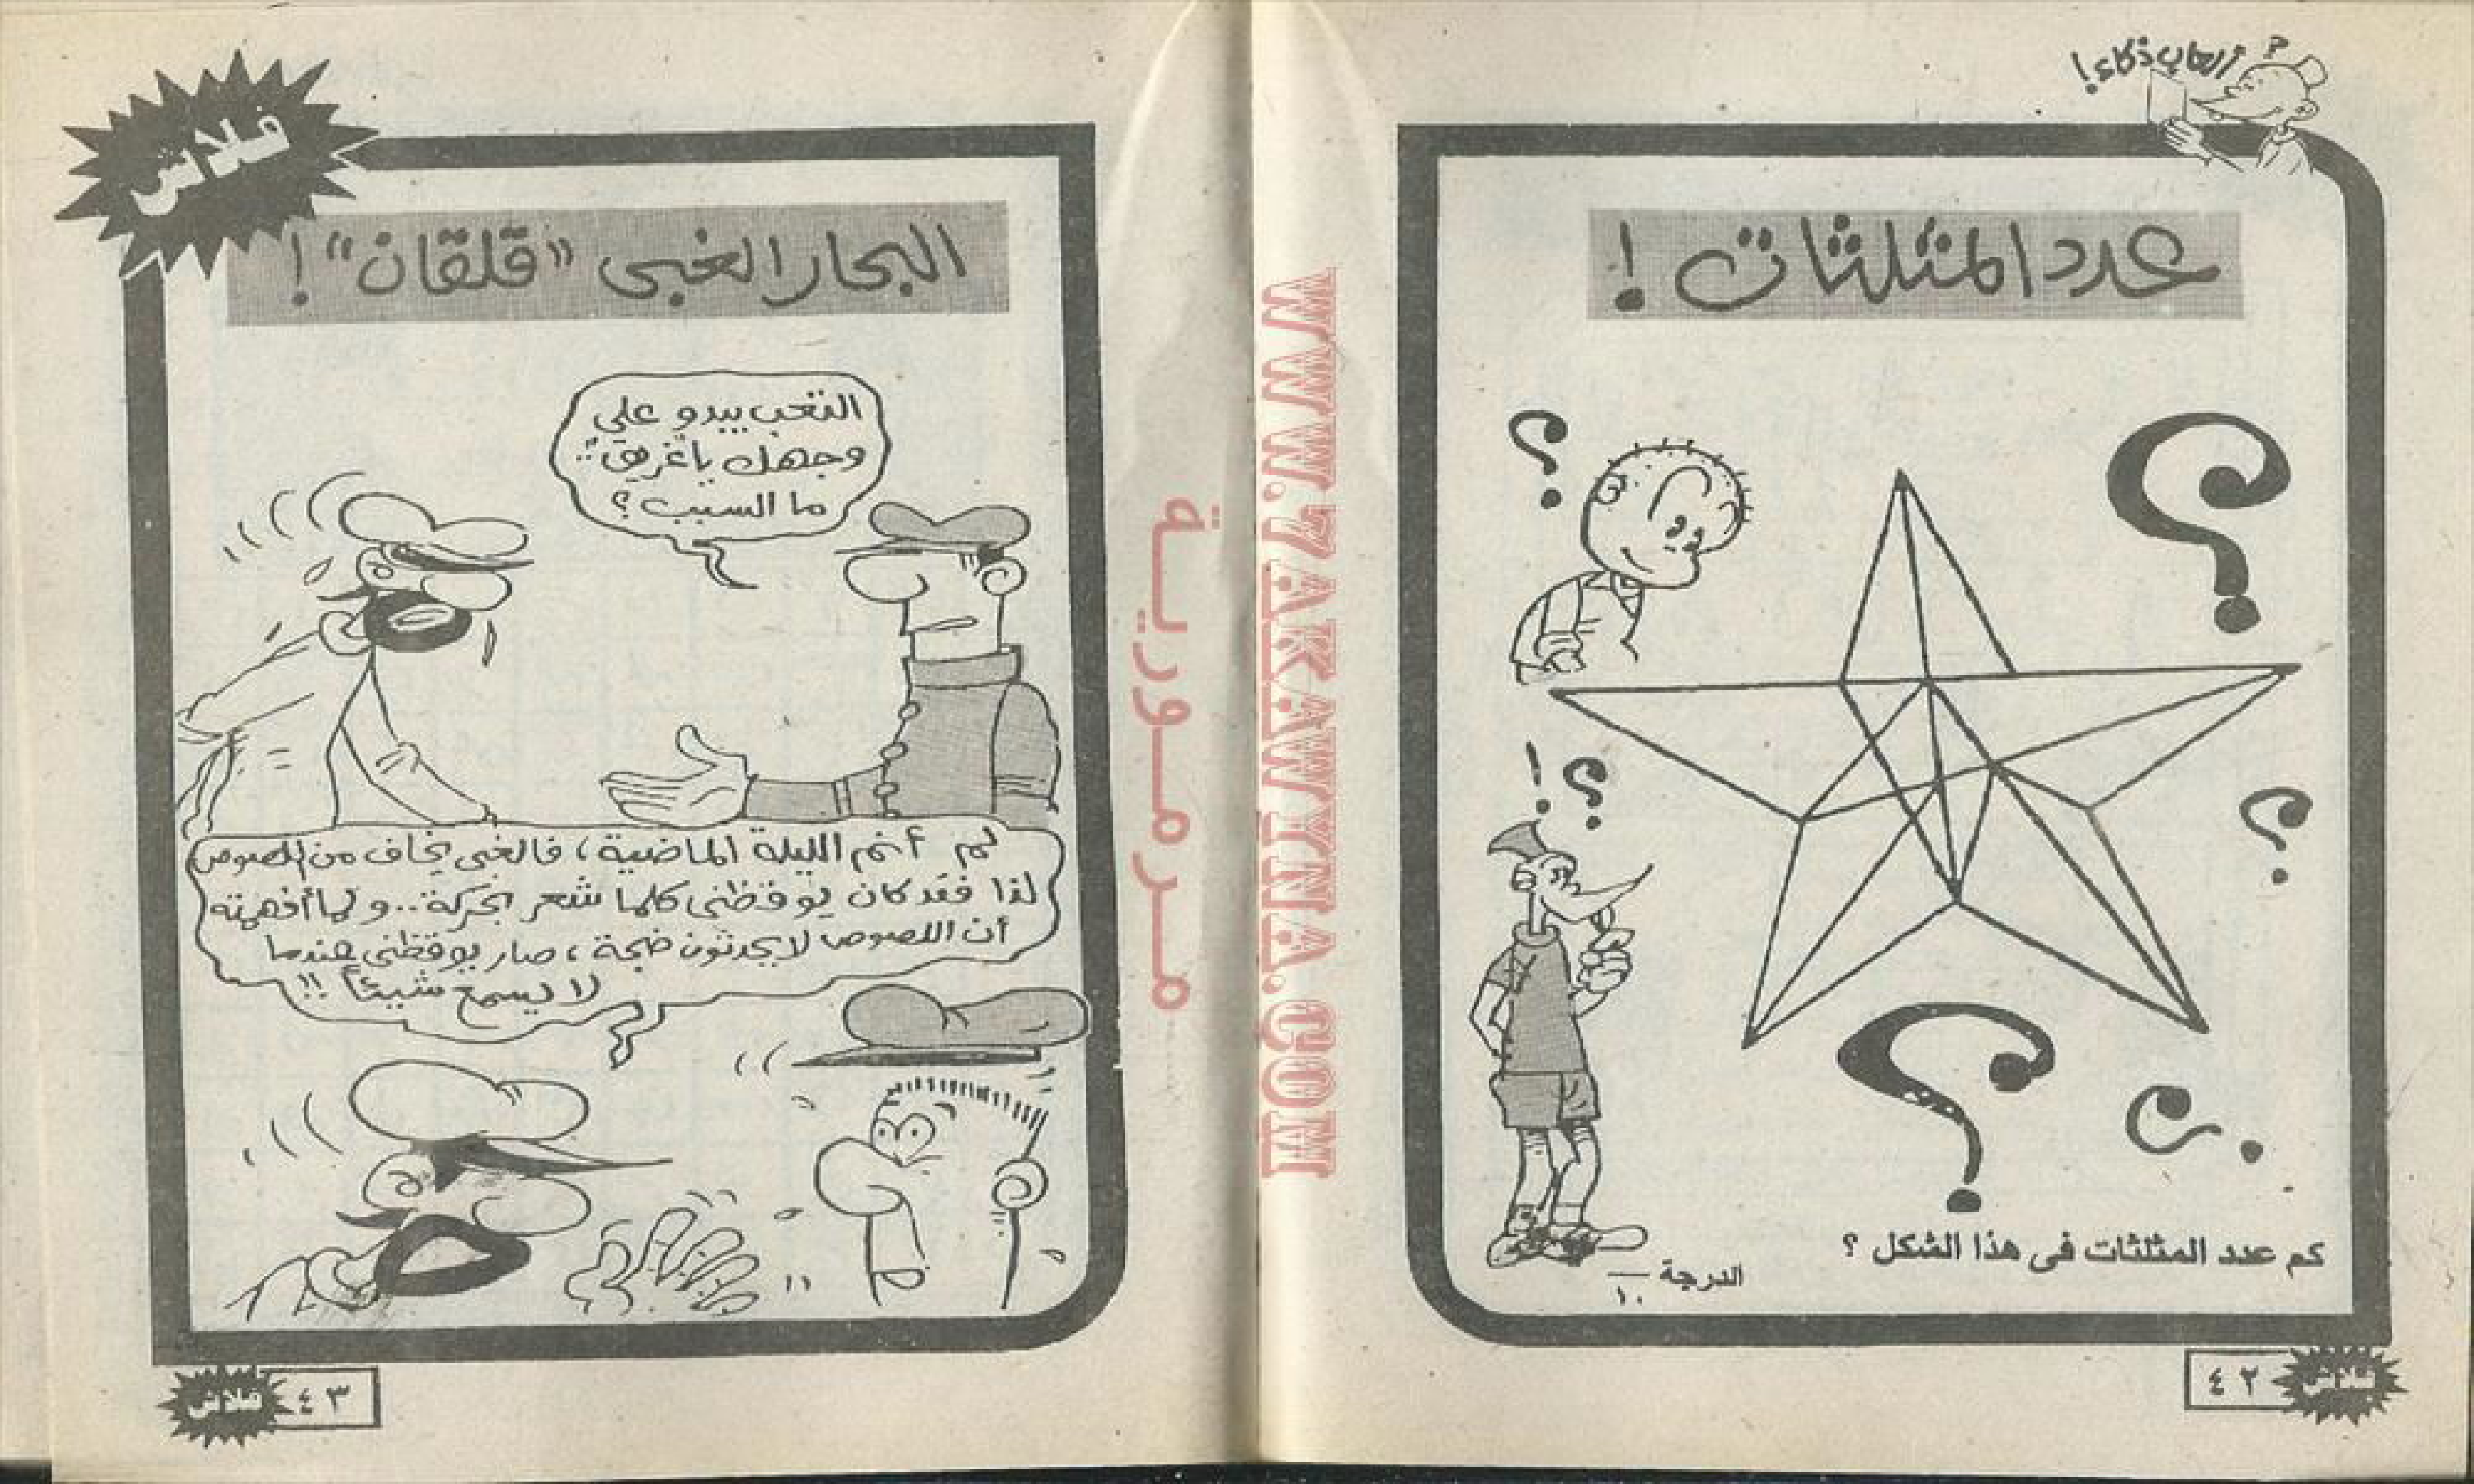 ألعاب ذكاء!
عدد المثلثات!
كم عدد المثلثات فى هذا الشكل ؟
الدرجة ــــ
١٠
٤٢
فلاش
WWW.7AKAWYNA.COM
مرمورية
فلاش
البحار الغبى "قلقان"!
التعب يبدو على
وجهك يا "غريق"..
ما السبب؟
لم أنم الليلة الماضية، فالغبى يخاف من اللصوص
لذا فقد كان يوقظنى كلما شعر بحركة.. و لما أفهمته
أن اللصوص لا يحدثون ضجة، صار يوقظنى عندما
لا يسمع شيئاً !!
فلاش
٤٣